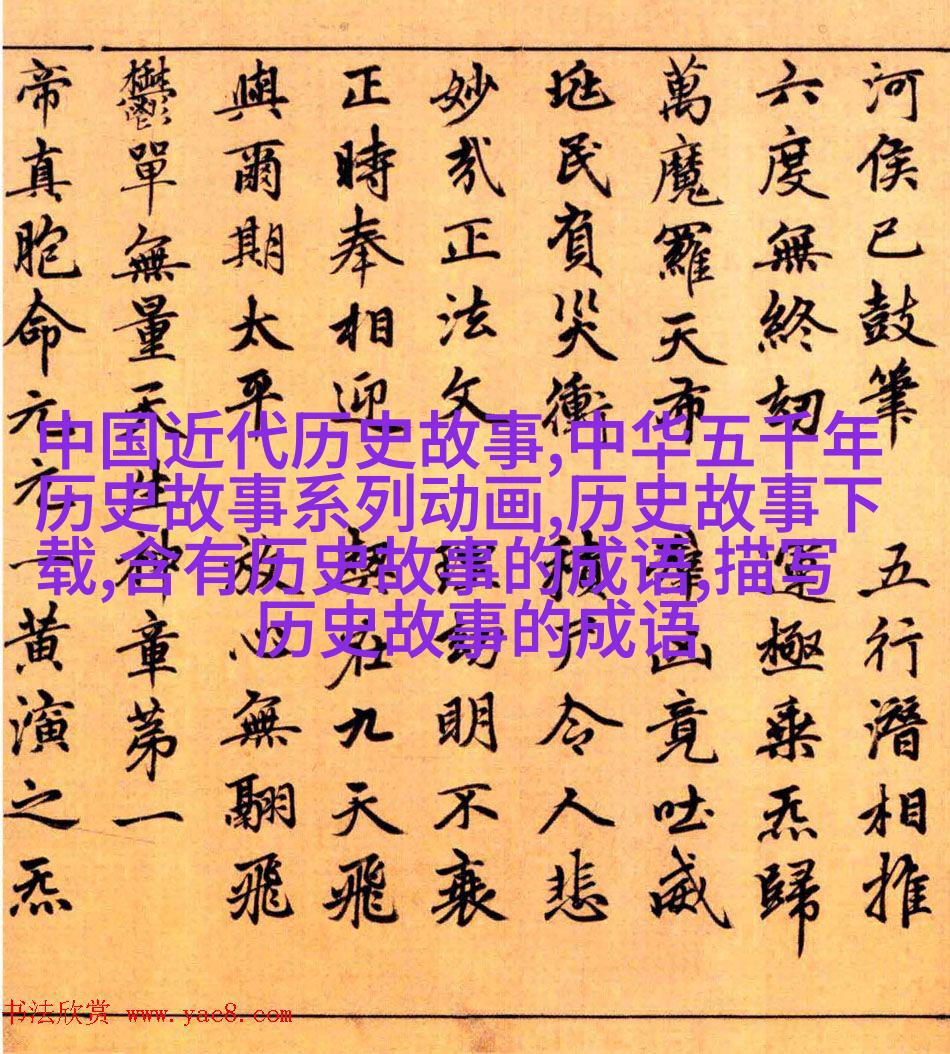 河侯已鼓筆 五行潛相推
六度無終劫 運極乘炁歸
萬魔羅天布 凶竟吐威
民負災衝 積尸令人悲
妙哉正法文 劫明不衰
正時奉相迎 在九天飛
與爾期太平 放心無翮飛
鬱單無量天生神章第一
帝真胞命元元一黃演之炁
中国近代历史故事,中华五千年
历史故事系列动画,历史故事下
载,含有历史故事的成语,描写
历史故事的成语
书法欣赏 www.yac8.com